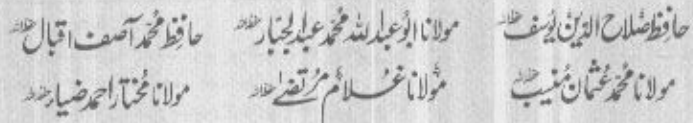 حافظ صلاح الدین یوسف حفظہ اللہ مولانا ابو عبد اللہ محمد عبد الجبار حفظہ اللہ حافظ محمد آصف اقبال حفظہ اللہ
مولانا محمد عثمان منیب حفظہ اللہ مولانا غلام مرتضےٰ حفظہ اللہ مولانا مختار احمد ضیاء حفظہ اللہ